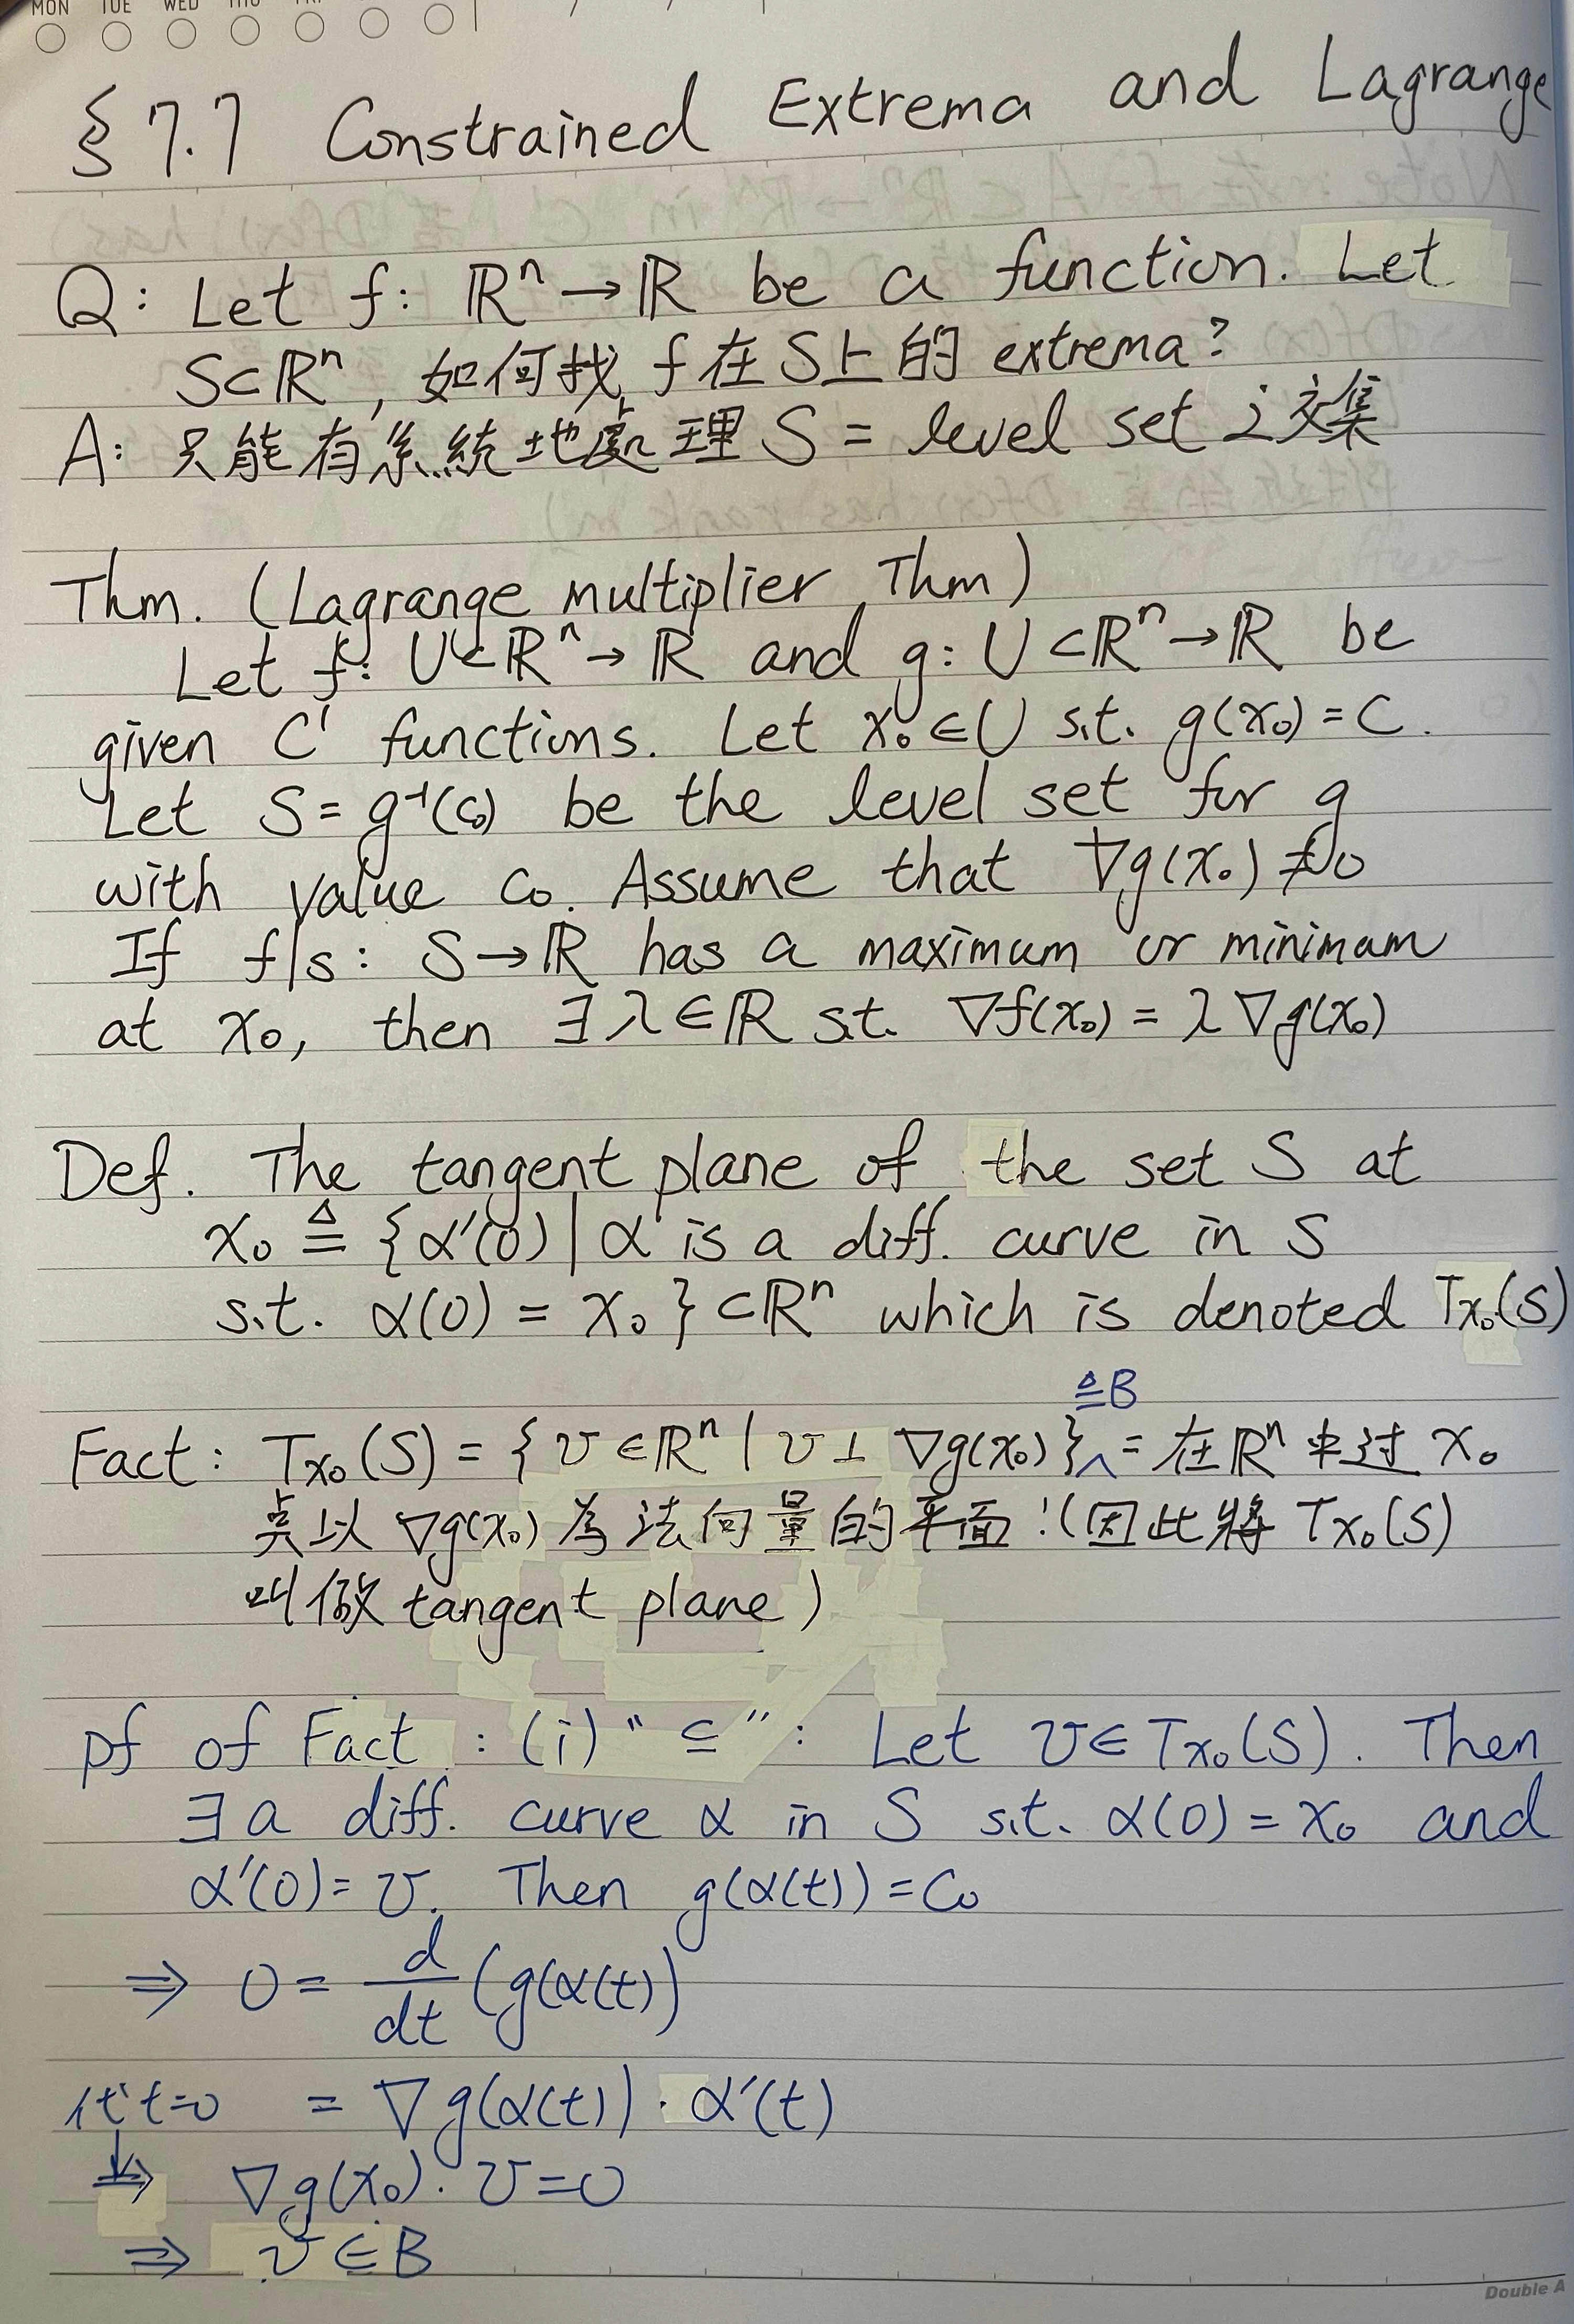 MON TUE WED THU FRI
§ 7.7 Constrained Extrema and Lagrange
Q: Let f: ℝⁿ → ℝ be a function. Let
S⊂ℝⁿ, 如何找 f 在 S上 的 extrema?
A: 只能有系統地處理 S = level set 之交集
Thm. (Lagrange multiplier Thm)
Let f: U⊂ℝⁿ → ℝ and g: U⊂ℝⁿ → ℝ be
given C¹ functions. Let x₀∈U s.t. g(x₀) = C.
Let S = g⁻¹(c₀) be the level set for g
with value c₀. Assume that ∇g(x₀) ≠ 0
If f|s : S → ℝ has a maximum or minimum
at x₀, then ∃ λ ∈ ℝ s.t. ∇f(x₀) = λ ∇g(x₀)
Def. The tangent plane of the set S at
x₀ ≜ {α'(0) | α is a diff. curve in S
s.t. α(0) = x₀ } ⊂ ℝⁿ which is denoted Tx₀(S)
≜B
Fact: Tx₀(S) = { v ∈ ℝⁿ | v ⊥ ∇g(x₀) } = 在 ℝⁿ 中过 x₀
点以 ∇g(x₀) 為法向量的平面!(因此將 Tx₀(S)
叫做 tangent plane)
pf of Fact : (i) “ ⊆ ” : Let v∈Tx₀(S). Then
∃ a diff. curve α in S s.t. α(0) = x₀ and
α'(0) = v. Then g(α(t)) = C₀
⇒ 0 = d/dt (g(α(t))
代t=0 = ∇g(α(t)) · α'(t)
⇒ ∇g(x₀) · v = 0
⇒ v ∈ B
Double A